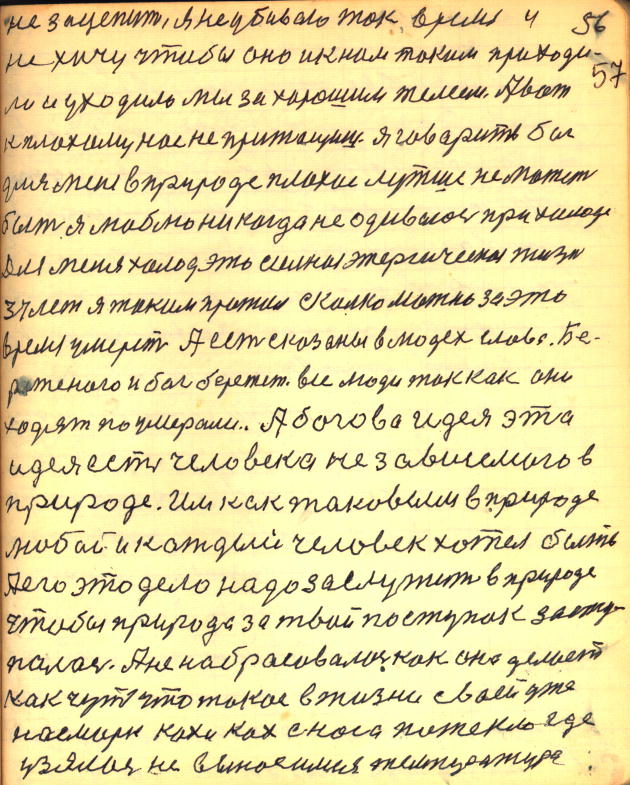 не зацепит, я не убиваю ток время и 56
не хичу чтобы оно и к нам таким приходи- 57
ло и уходило мы за хорошим телеем. А вот
к плохому нас не притащиш. я говарить бог
для мене в природе плохое лутше не может
быть я люблю никагда не одиваюся при холоде
Для меня холод это силная этергическая жизн
37 лет я таким протил сколко можно за это
время умерет А есть сказаны в людех слова. Бе-
реженого и бог бережет. все люди так как они
ходят по умерали.. А богова идея эта
идея есть человека не зависемого в
природе. Им как таковым в природе
любой и каждый человек хотел быть
А его это дело надо заслужит в природе
чтобы природа за твой поступак засту-
палая. А не набрасовалас как она делает
как чуть что такое в жизни своей уже
насморк кахи ках с носа потекло где
узялоя не выносимая температура